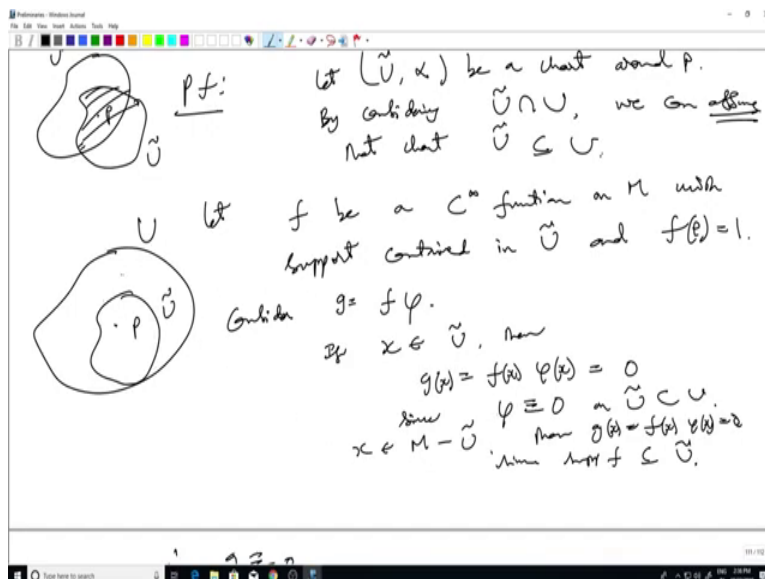 Preliminaries - Windows Journal
File Edit View Insert Actions Tools Help
B I
Pf:
let (Ũ, α) be a chart around p.
By considering Ũ ∩ U, we can assume
that chart Ũ ⊆ U.
Ũ
p
U
let f be a C^∞ function on M with
support contained in Ũ and f(p) = 1.
Ũ
p
Consider g = f φ.
If x ∈ Ũ, then
g(x) = f(x) φ(x) = 0
since φ ≡ 0 on Ũ ⊂ U.
x ∈ M - Ũ then g(x) = f(x) φ(x) = 0
since supp f ⊆ Ũ.
g ≡ 0
111 / 112
Type here to search
ENG 2:08 PM